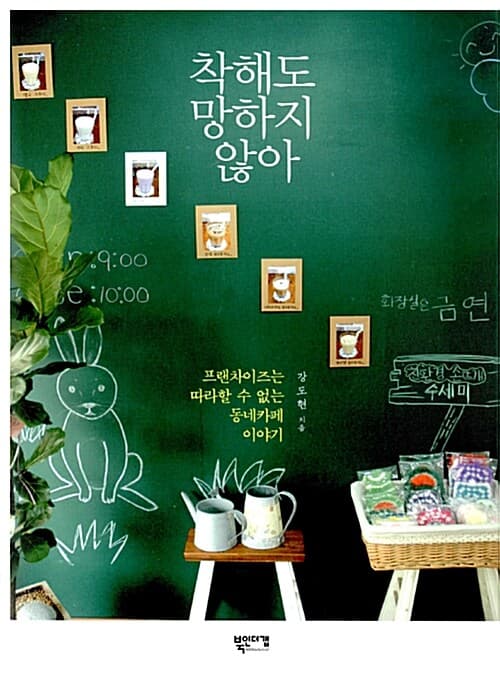 착해도
망하지
않아
:9:00
:10:00
화장실은 금연
친환경 소재
수세미
프랜차이즈는
따라할 수 없는
동네카페
이야기
강도현 지음
북인더갭